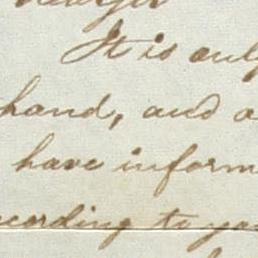 It is only
hand, and a
have inform
ccording to you